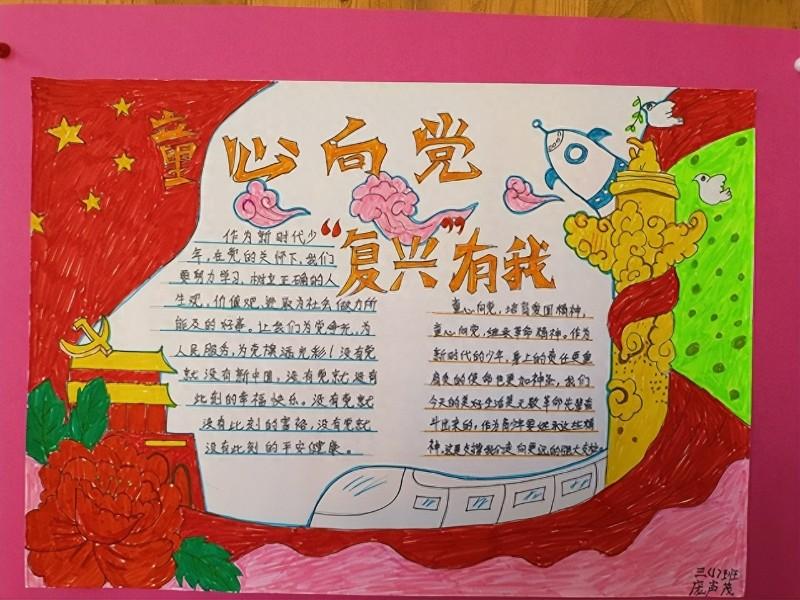 童心向党
"复兴"有我
作为新时代少
年,在党的关怀下,我们
要努力学习,树立正确的人
生观,价值观,争取为社会做力所
能及的好事。让我们为党争光,为
人民服务,为党旗添光彩!没有党
就没有新中国,没有党就没有
此刻的幸福快乐。没有党就
没有此刻的富裕,没有党就
没有此刻的平安健康。
童心向党,培育爱国精神,
童心向党,继承革命精神。作为
新时代的少年,身上的责任更重
肩负的使命也更加神圣,我们
今天的美好生活是无数革命先辈奋
斗出来的,作为青少年要继承这些精
神,这是支撑我们走向更远的强大支柱。
三(1)班